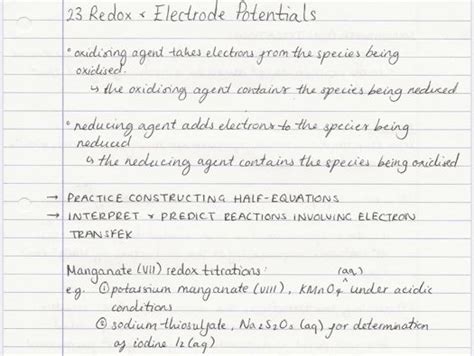 23 Redox & Electrode Potentials
• oxidising agent takes electrons from the species being
oxidised.
↳ the oxidising agent contains the species being reduced
• reducing agent adds electrons to the species being
reduced
↳ the reducing agent contains the species being oxidised
→ PRACTICE CONSTRUCTING HALF-EQUATIONS
→ INTERPRET & PREDICT REACTIONS INVOLVING ELECTRON
TRANSFER
Manganate (VII) redox titrations:
e.g. ① potassium manganate (VIII), KMnO4 (aq) under acidic
conditions
② sodium thiosulfate, Na2S2O3 (aq) for determination
of iodine I2 (aq)